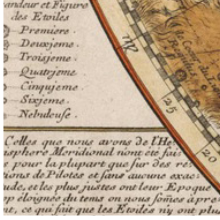 andeur et Figure
des Etoiles
Premiere.
Deuxjeme.
Troisjeme.
Quatrjeme.
Cinqujeme.
Sixjeme.
Nebuleuse.
25
20
Celles que nous avons de l'He
isphere Meridional n'ont été fai
pour la plupart que sur des re
tions de Pilotes et sans aucune exac
ude, et les plus justes ont leur Epoque
op éloignée du tems ou nous sommes a pr
e, ce qui fait que les Etoiles n'y ont plu